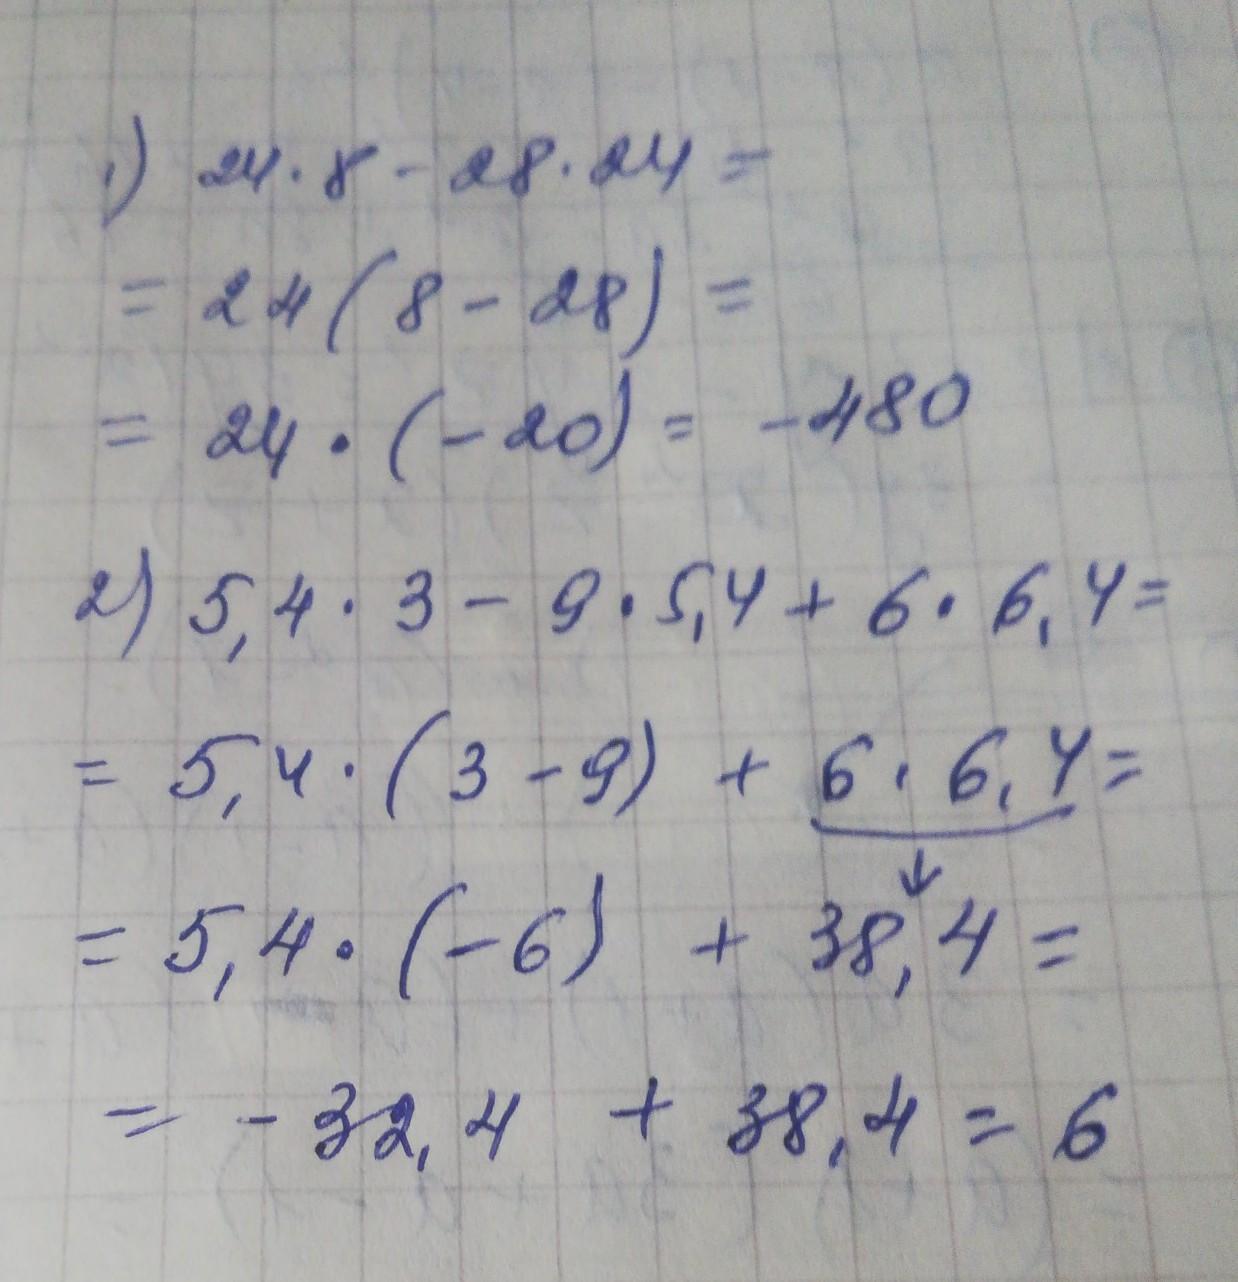 1) 24·8 - 28·24 =
= 24(8 - 28) =
= 24 · (-20) = -480
2) 5,4 · 3 - 9 · 5,4 + 6 · 6,4 =
= 5,4 · (3 - 9) + 6 · 6,4 =
↓
= 5,4 · (-6) + 38,4 =
= -32,4 + 38,4 = 6